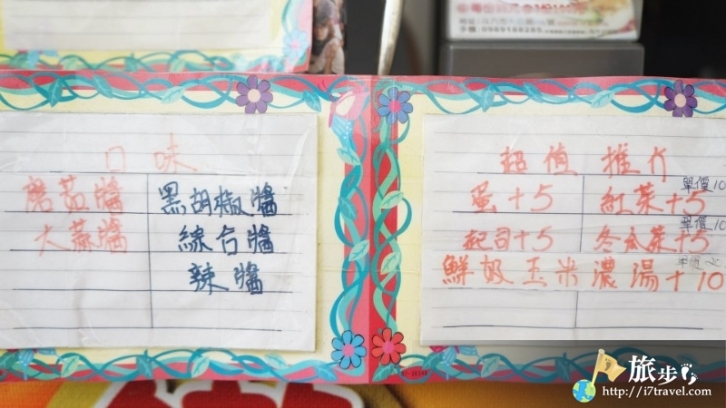 口味
蘑菇醬 黑胡椒醬
大蒜醬 綜合醬
辣醬
超值推介
單價10
蛋+5 紅茶+5
單價10
起司+5 冬瓜茶+5
鮮奶玉米濃湯+10
旅步
http://i7travel.com/